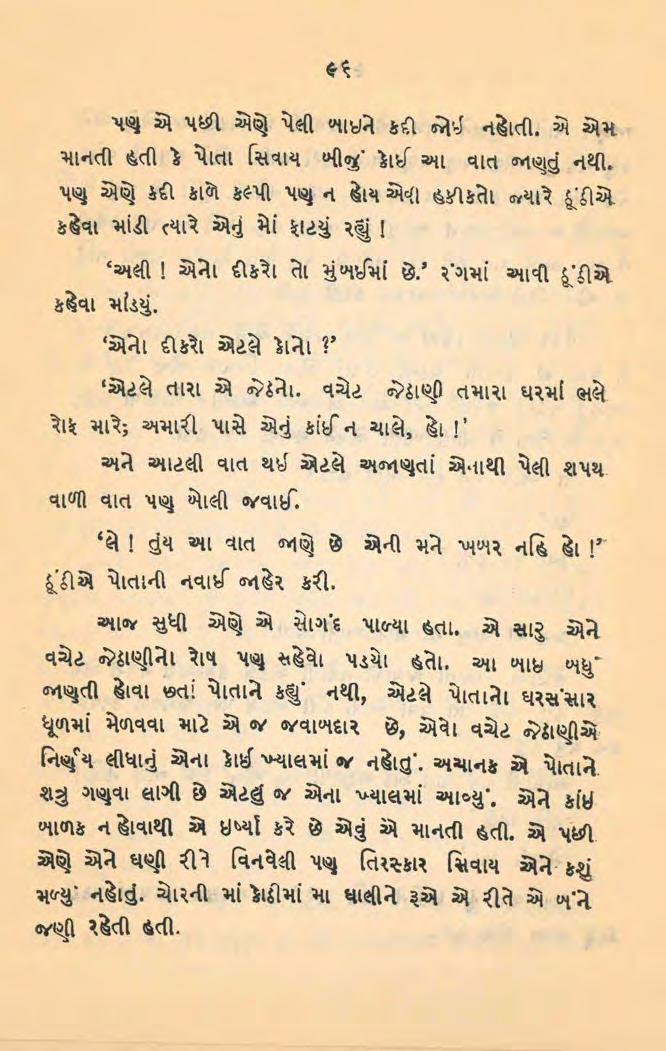 ૯૬
પણ એ પછી એણે પેલી બાઇને કદી જોઈ નહોતી. એ એમ
માનતી હતી કે પોતા સિવાય બીજું કોઈ આ વાત જાણતું નથી.
પણ એણે કદી કાળે કલ્પી પણ ન હોય એવી હકીકતો જ્યારે ઠૂંઠીએ
કહેવા માંડી ત્યારે એનું મોં ફાટયું રહ્યું !
‘અલી ! એનો દીકરો તો મુંબઈમાં છે.’ રંગમાં આવી ઠૂંઠીએ
કહેવા માંડયું.
‘એનો દીકરો એટલે કોનો ?’
‘એટલે તારા એ જેઠનો. વચેટ જેઠાણી તમારા ઘરમાં ભલે
રોફ મારે; અમારી પાસે એનું કાંઈ ન ચાલે, હો !’
અને આટલી વાત થઇ એટલે અજાણતાં એનાથી પેલી શપથ
વાળી વાત પણ બોલી જવાઈ.
‘લે ! તુંય આ વાત જાણે છે એની મને ખબર નહિ હો !’
ઠૂંઠીએ પોતાની નવાઈ જાહેર કરી.
આજ સુધી એણે એ સોગંદ પાળ્યા હતા. એ સારુ એને
વચેટ જેઠાણીનો રોષ પણ સહેવો પડયો હતો. આ બાઇ બધું
જાણતી હોવા છતાં પોતાને કહ્યું નથી, એટલે પોતાનો ઘરસંસાર
ધૂળમાં મેળવવા માટે એ જ જવાબદાર છે, એવો વચેટ જેઠાણીએ
નિર્ણય લીધાનું એના કોઇ ખ્યાલમાં જ નહોતું. અચાનક એ પોતાને
શત્રુ ગણવા લાગી છે એટલું જ એના ખ્યાલમાં આવ્યું. એને કાંઇ
બાળક ન હોવાથી એ ઇર્ષ્યા કરે છે એવું એ માનતી હતી. એ પછી
એણે એને ઘણી રીતે વિનવેલી પણ તિરસ્કાર સિવાય એને કશું
મળ્યું નહોતું. ચોરની માં કોઠીમાં મા ઘાલીને રૂએ એ રીતે એ બંને
જણી રહેતી હતી.